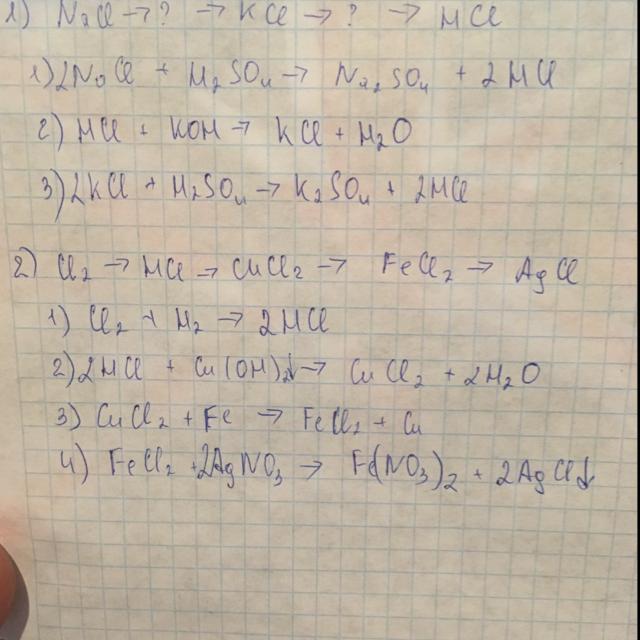 1) NaCl → ? → KCl → ? → HCl
1) 2NaCl + H₂SO₄ → Na₂SO₄ + 2HCl
2) HCl + KOH → KCl + H₂O
3) 2KCl + H₂SO₄ → K₂SO₄ + 2HCl
2) Cl₂ → HCl → CuCl₂ → FeCl₂ → AgCl
1) Cl₂ + H₂ → 2HCl
2) 2HCl + Cu(OH)₂↓ → CuCl₂ + 2H₂O
3) CuCl₂ + Fe → FeCl₂ + Cu
4) FeCl₂ + 2AgNO₃ → Fe(NO₃)₂ + 2AgCl↓